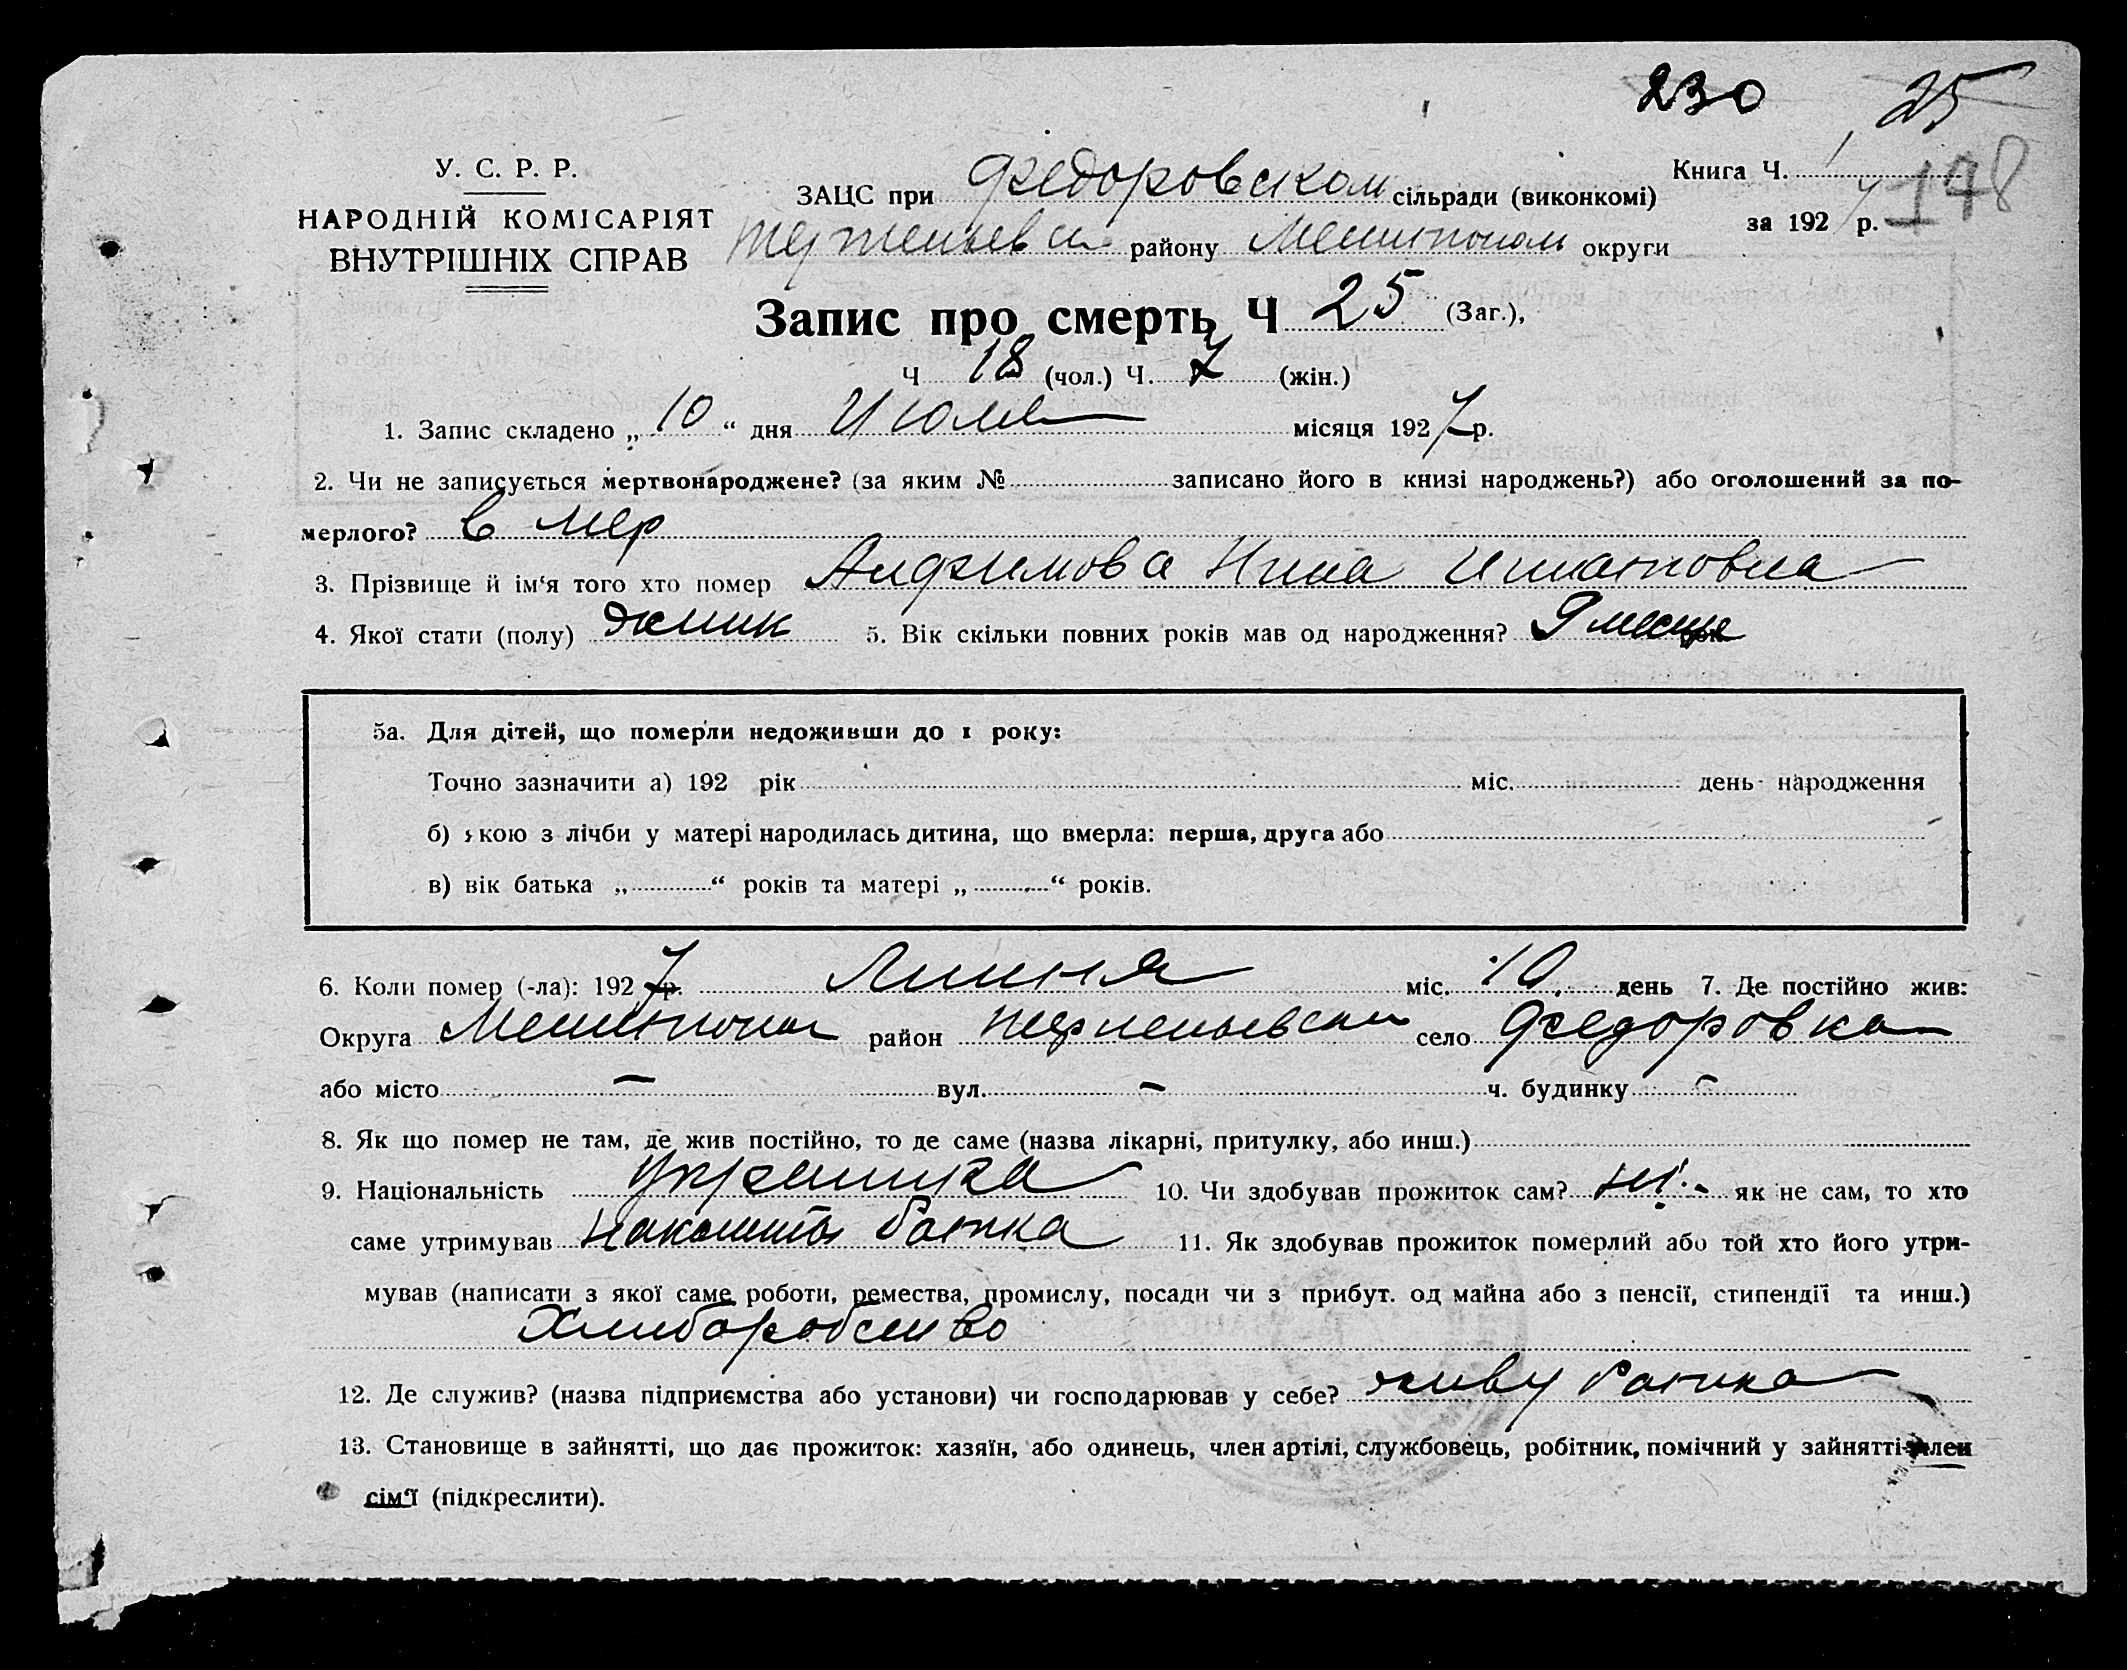 230 25
У. С. Р. Р.
НАРОДНІЙ КОМІСАРІЯТ
ВНУТРІШНІХ СПРАВ
Книга Ч. 1 148
ЗАЦС при Федоровском сільради (виконкомі)
за 1927 р.
району Мелитополь округи
Запис про смерть Ч 25 (Заг.),
Ч 18 (чол.) Ч. 7 (жін.)
1. Запис складено „ 10 “ дня Июля місяця 1927 р.
2. Чи не записується мертвонароджене? (за яким № записано його в книзі народжень?) або оголошений за по-
мерлого? в мер
3. Прізвище й ім‘я того хто помер Анфимова Нина Игнатовна
4. Якої стати (полу) жинк 5. Вік скільки повних років мав од народження? 9 месяце
5а. Для дітей, що померли недоживши до 1 року:
Точно зазначити а) 192 рік міс. день народження
б) якою з лічби у матері народилась дитина, що вмерла: перша, друга або
в) вік батька „ “ років та матері „ “ років.
6. Коли помер (-ла): 1927 р. Липня міс. 10 день 7. Де постійно жив:
Округа Мелитопол район село Федоровка
або місто – вул. – ч. будинку –
8. Як що помер не там, де жив постійно, то де саме (назва лікарні, притулку, або инш.)
9. Національність украинка 10. Чи здобував прожиток сам? ні. як не сам, то хто
саме утримував батька 11. Як здобував прожиток померлий або той хто його утри-
мував (написати з якої саме роботи, ремества, промислу, посади чи з прибут. од майна або з пенсії, стипендії та инш.)
Хлиборобство
12. Де служив? (назва підприємства або установи) чи господарював у себе? живу батька
13. Становище в зайнятті, що дає прожиток: хазяїн, або одинець, член артілі, службовець, робітник, помічний у зайнятті член
сім‘ї (підкреслити).